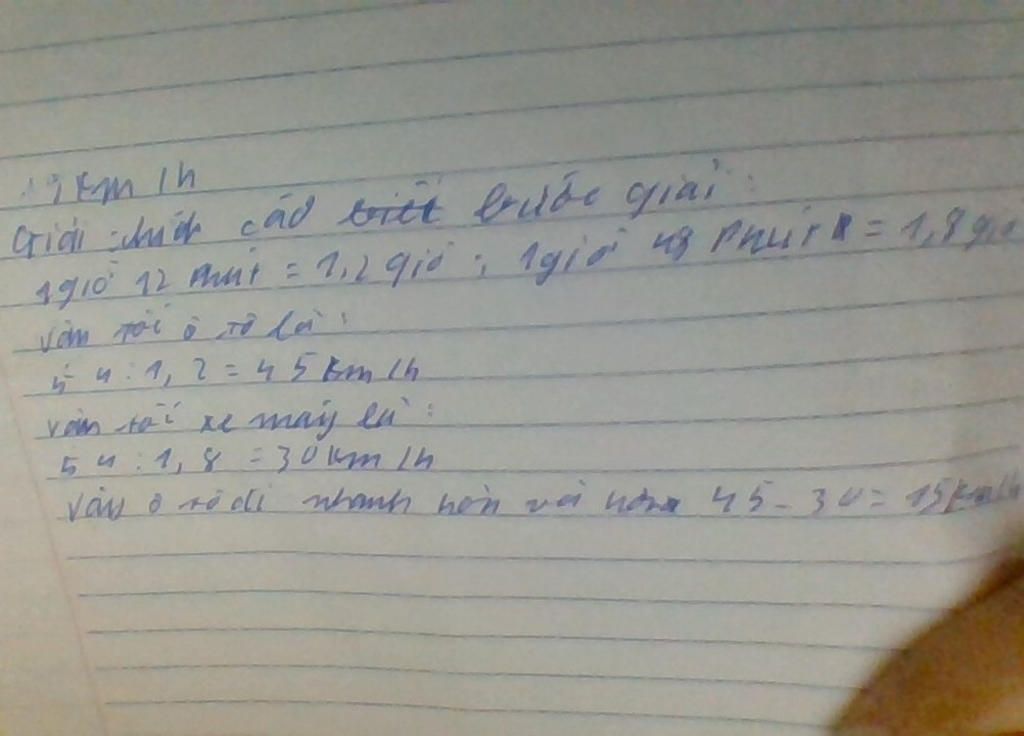 km/h
Giải: các bước giải:
1 giờ 12 phút = 1,2 giờ; 1 giờ 48 phút = 1,8 giờ
vận tốc ô tô là:
54:1,2 = 45km/h
vận tốc xe máy là:
54:1,8 = 30km/h
vậy ô tô đi nhanh hơn và hơn 45-30=15km/h